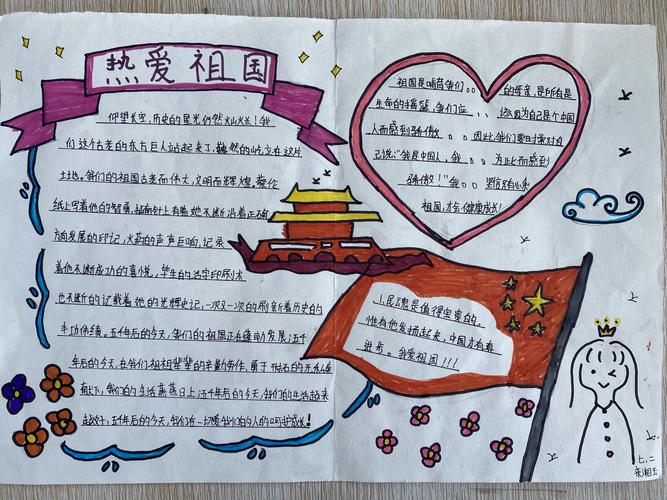 热爱祖国
仰望长空,历史的星光仍然灿烂!我
们这个古老的东方巨人站起来了,巍然的屹立在这片
土地。我们的祖国古老而伟大,文明而辉煌。蔡伦
纸上写着他的智勇,指南针上有着她不断沿着正确
方向发展的印记,火药的声声巨响,记录
着他不断成功的喜悦,毕生的活字印刷术
也不断的记载着她的光辉史记,一次又一次的刷新着历史的
丰功伟绩。五千年后的今天,我们的祖国正在蓬勃发展;五千
年后的今天,在我们祖祖辈辈的辛勤劳作,勇于
我们的生活蒸蒸日上;五千年后的今天,我们的生活越来
越好;五千年后的今天,我们
祖国是哺育我们。。的母亲,是所有
生命的摇篮,我们应。。该因为自己是个中国
人而感到骄傲。。因此,我们要时常对自
己说:“我是中国人,我。。为此而感到
骄傲!”我。。坚信有心系
祖国,才会健康成长!
1.民魂是值得宝贵的,
惟有他发扬起来,中国才有着
进步。我爱祖国!!!
七、二